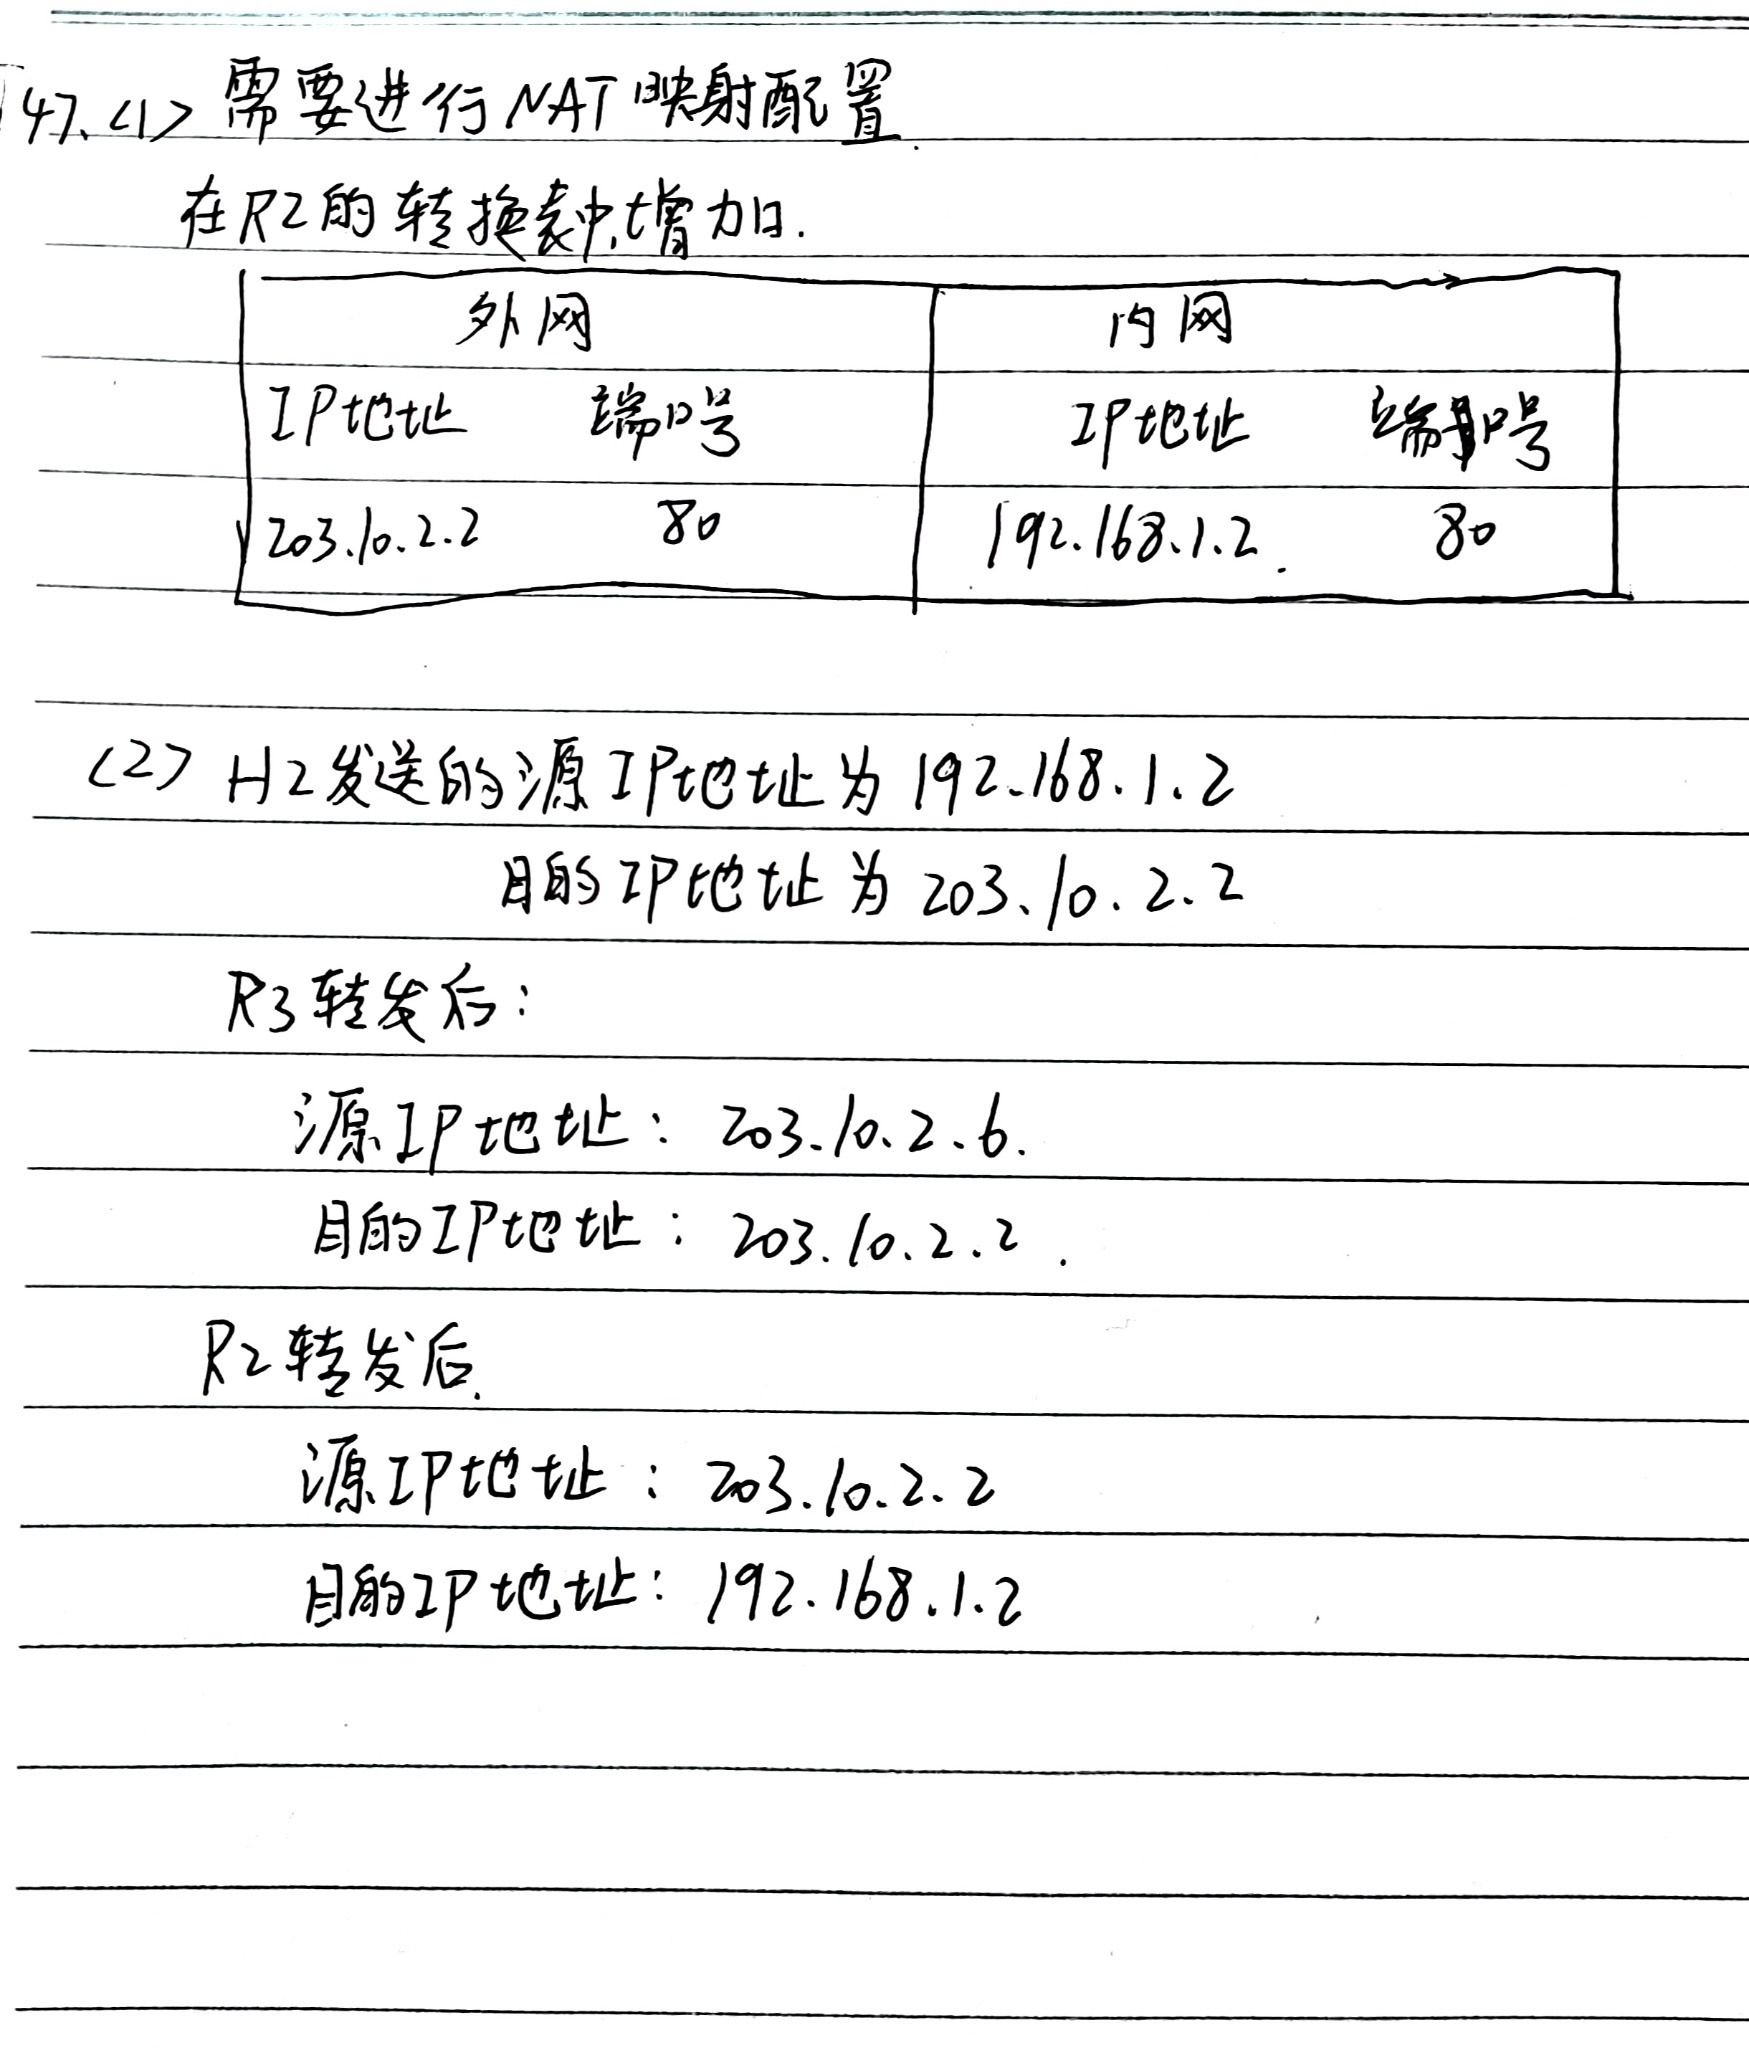 47.<1> 需要进行NAT映射配置.
在R2的转换表中,增加.
外网 内网
IP地址 端口号 IP地址 端口号
203.10.2.2 80 192.168.1.2. 80
(2) H2发送的源IP地址为192.168.1.2
目的IP地址为203.10.2.2
R3转发后:
源IP地址: 203.10.2.6.
目的IP地址: 203.10.2.2.
R2转发后.
源IP地址: 203.10.2.2
目的IP地址: 192.168.1.2